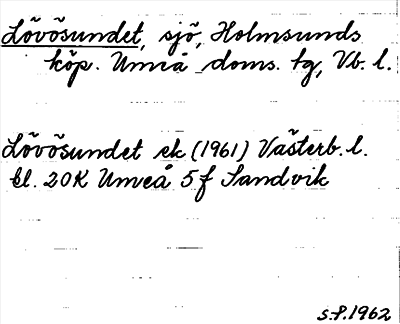 Lövösundet, sjö, Holmsunds
köp. Umeå doms. tg, Vb. l.
Lövösundet ek (1961) Västerb. l.
bl. 20K Umeå 5f Sandvik
S.P. 1962